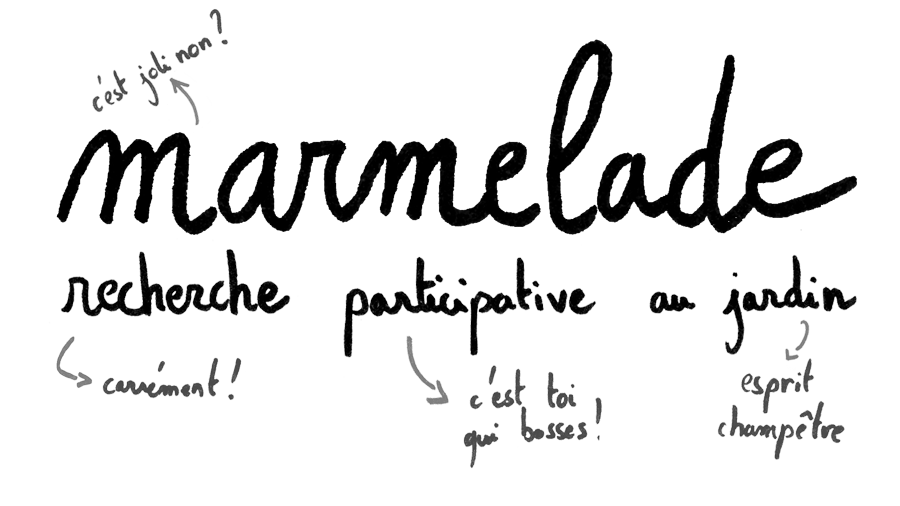 c'est joli non ?
marmelade
recherche participative au jardin
carrément !
c'est toi
qui bosses !
esprit
champêtre